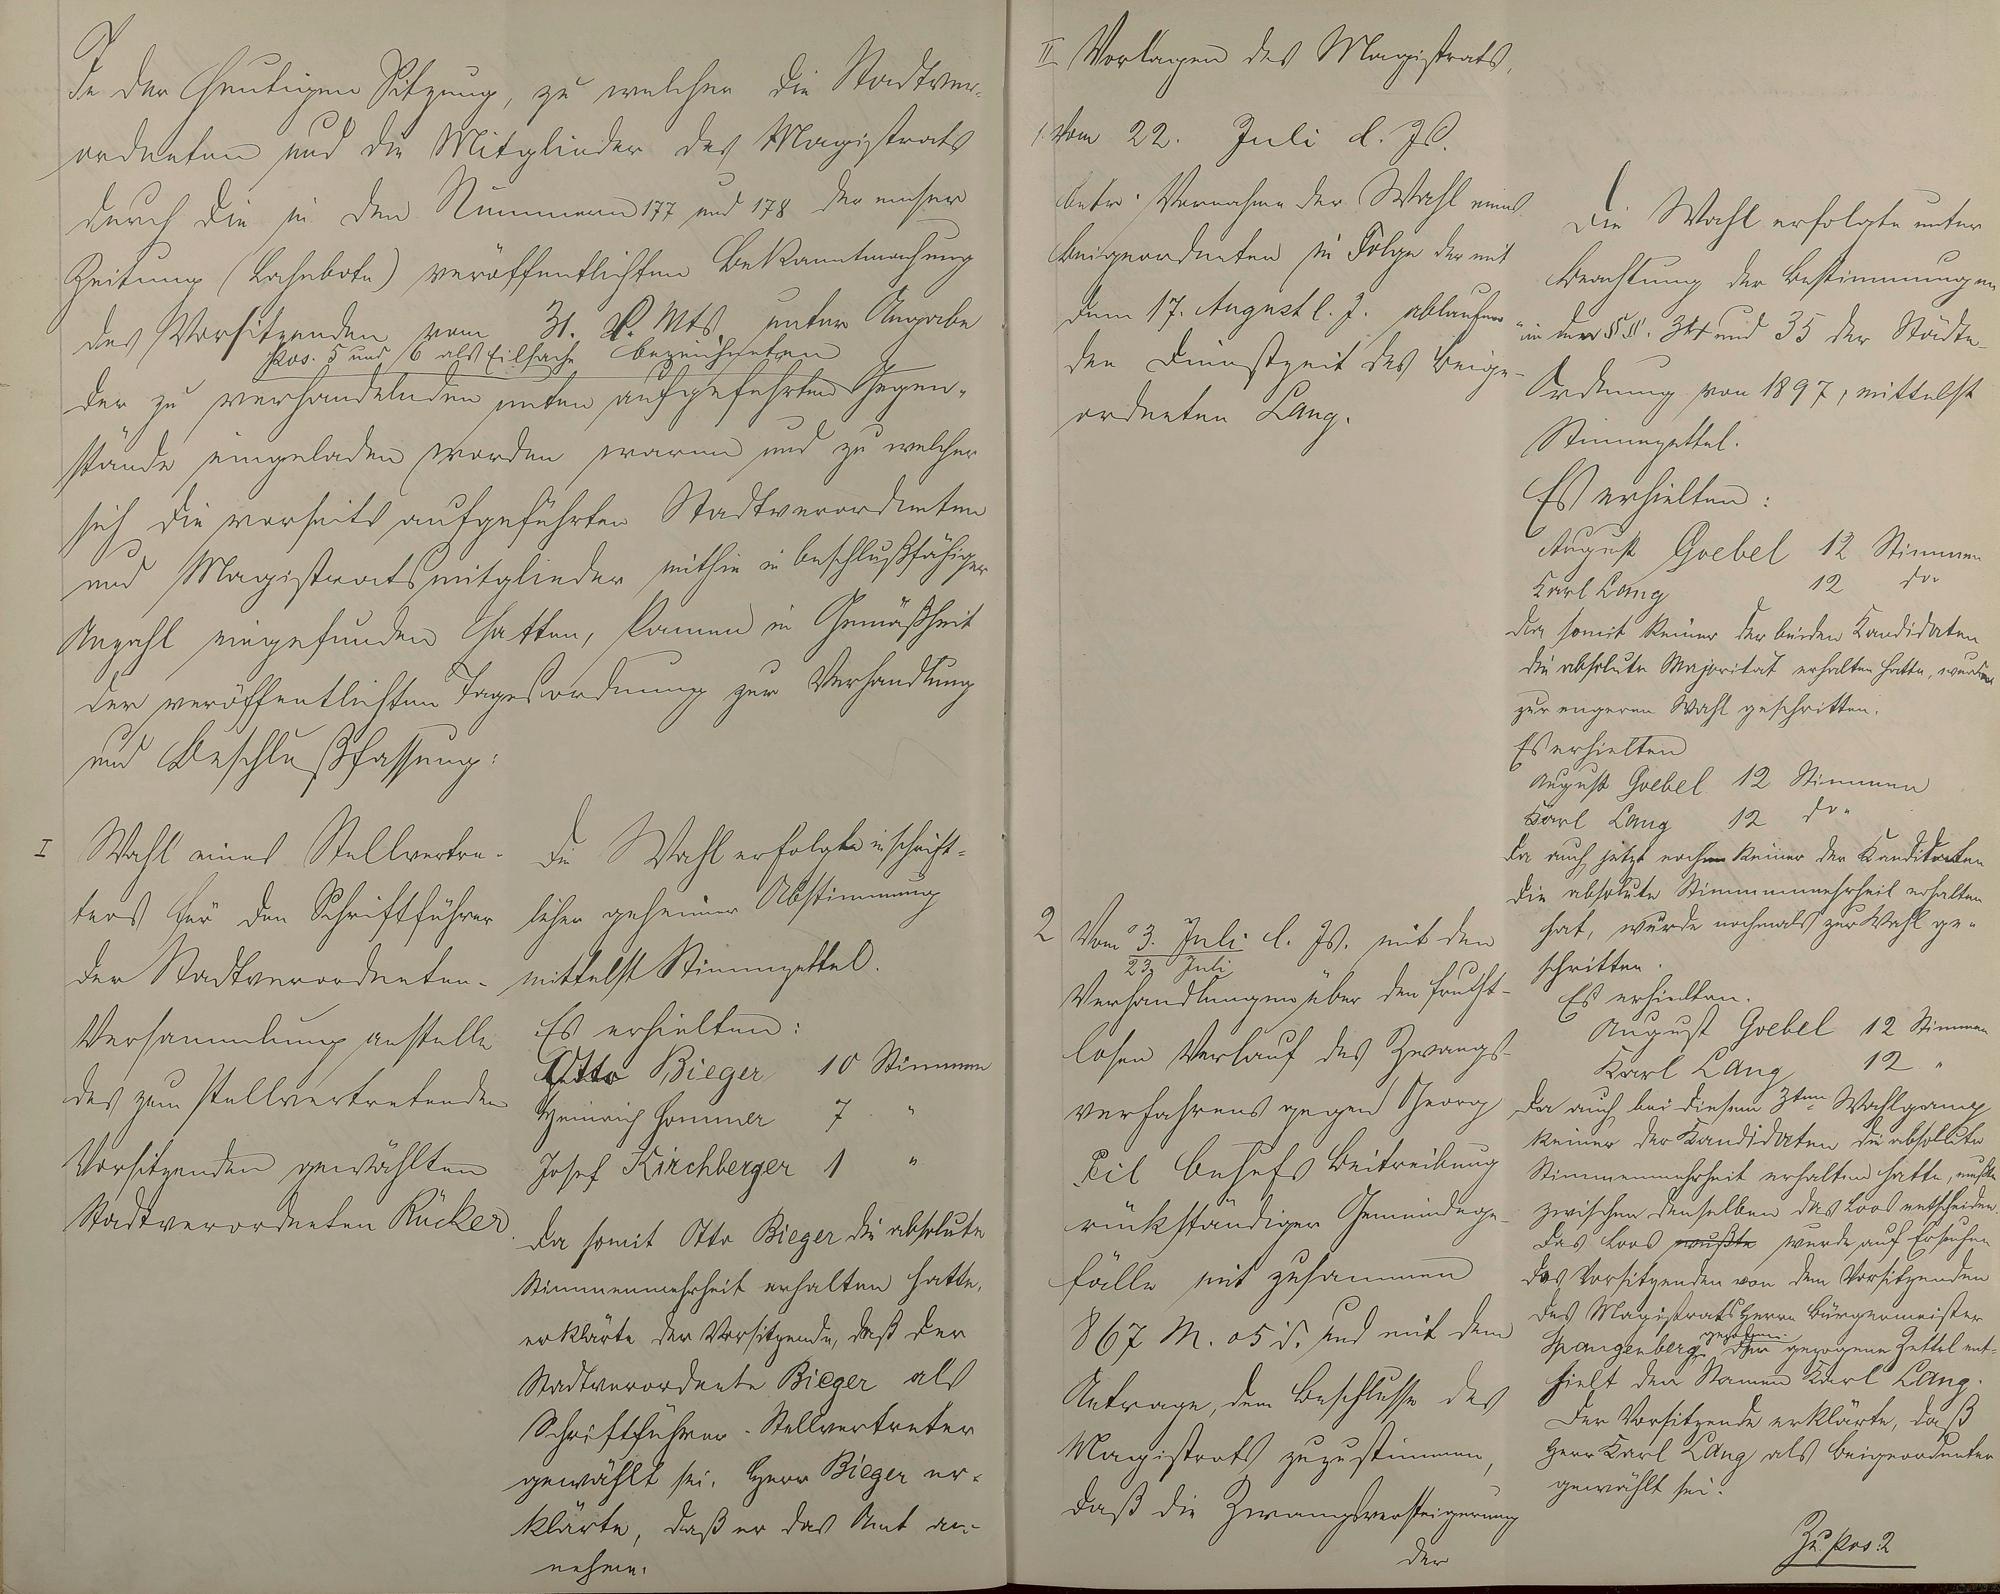 In der heutigen Sitzung, zu welcher die Stadtver-
ordneten und die Mitglieder des Magistrats
durch die in den Nummern 177 und 178 der emser
Zeitung (Lahnbote) veröffentlichten Bekanntmachung
des Vorsitzenden vom 31. v. Mts. unter Angabe
Pos. 5 und 6 als Eilsache bezeichneten
der zu verhandelnden unten aufgeführten Gegen-
stände eingeladen worden waren und zu welcher
sich die vorseits aufgeführten Stadtverordneten
und Magistratsmitglieder mithin in beschlußfähiger
Anzahl eingefunden hatten, kamen in Gemäßheit
der veröffentlichten Tagesordnung zur Verhandlung
und Beschlußfassung:
I Wahl eines Stellvertre-
ters für den Schriftführer
der Stadtverordneten-
Versammlung anstelle
des zum stellvertretenden
Vorsitzenden gewählten
Stadtverordneten Rücker.
Die Wahl erfolgte in schrift-
licher geheimer Abstimmung
mittelst Stimmzettel.
Es erhielten:
Otto Bieger 10 Stimmen
Heinrich Hommer 7 "
Josef Kirchberger 1 "
Da somit Otto Bieger die absolute
Stimmenmehrheit erhalten hatte,
erklärte der Vorsitzende, daß der
Stadtverordnete Bieger als
Schriftführer-Stellvertreter
gewählt sei. Herr Bieger er-
klärte, daß er das Amt an-
nehme.
II Vorlagen des Magistrats,
1. Vom 22. Juli d. Js.
betr. Vornahme der Wahl eines
Beigeordneten in Folge der mit
dem 17. August l. J. ablaufen-
den Dienstzeit des Beige-
ordneten Lang.
Die Wahl erfolgte unter
Beachtung der Bestimmungen
in den §§. 34 und 35 der Städte-
Ordnung von 1897, mittelst
Stimmzettel.
Es erhielten:
August Goebel 12 Stimmen
Karl Lang 12 do.
Da somit keiner der beiden Kandidaten
die absolute Majorität erhalten hatte, wurde
zur engeren Wahl geschritten.
Es erhielten
August Goebel 12 Stimmen
Karl Lang 12 do.
Da auch jetzt noch keiner der Kanditaten
die absolute Stimmmenmehrheit erhalten
hat, wurde nochmals zur Wahl ge-
schritten.
Es erhielten.
August Goebel 12 Stimmen
Karl Lang 12 "
Da auch bei diesem 3ten Wahlgang
keiner der Kandidaten die absolute
Stimmenmehrheit erhalten hatte, mußte
zwischen denselben das Loos entscheiden.
Das Loos mußte wurde auf Ersuchen
des Vorsitzenden von dem Vorsitzenden
des Magistrats Herrn Bürgermeister
gezogen.
Spangenberg Der gezogene Zettel ent-
hielt den Namen Karl Lang.
Der Vorsitzende erklärte, daß
Herr Karl Lang als Beigeordneter
gewählt sei.
2 Vom 3. Juli l. Js. mit den
23. Juli
Verhandlungen über den frucht-
losen Verlauf des Zwangs-
verfahrens gegen Georg
Beil behufs Beitreibung
rückständiger Gemeindege-
fälle mit zusammen
867 M. 05 d. und mit dem
Antrage, dem Beschlusse des
Magistrats zuzustimmen,
daß die Zwangsversteigerung
der
Zu pos. 2